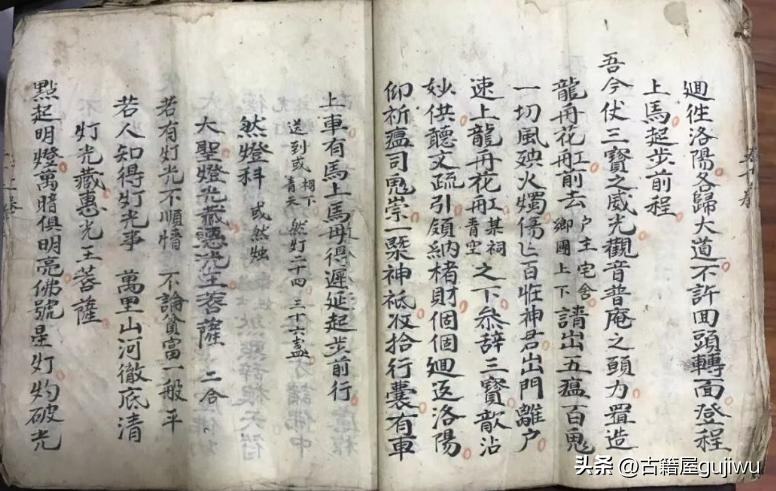 迴徃洛陽各歸大道不許回頭轉面登程
上馬起步前程
吾今伏三寶之威光觀音普庵之願力置造
龍舟花舡前去 户主宅舍 鄉團上下 請出五瘟百鬼
一切風殃火燭傷亡百姓神君出門離户
速上龍舟花舡 某祠 青空 之下叅辞三寳歆沾
妙供聽文疏引領納楮財個個迴返洛陽
仰祈瘟司鬼祟一槩神祇收拾行囊有車
上車有馬上馬毋得遲延起步前行
送到或 祠下 青天 然灯二十四 三十六盞
然燈科 或然烛
大聖燈光藏惠光王菩薩 二合
若有灯光不順情 不論貧富一般平
若人知得灯光事 萬里山河徹底清
灯光藏惠光王菩薩
點起明燈萬暗俱明亮佛號是灯灼破光
头条 @古籍屋gujiwu